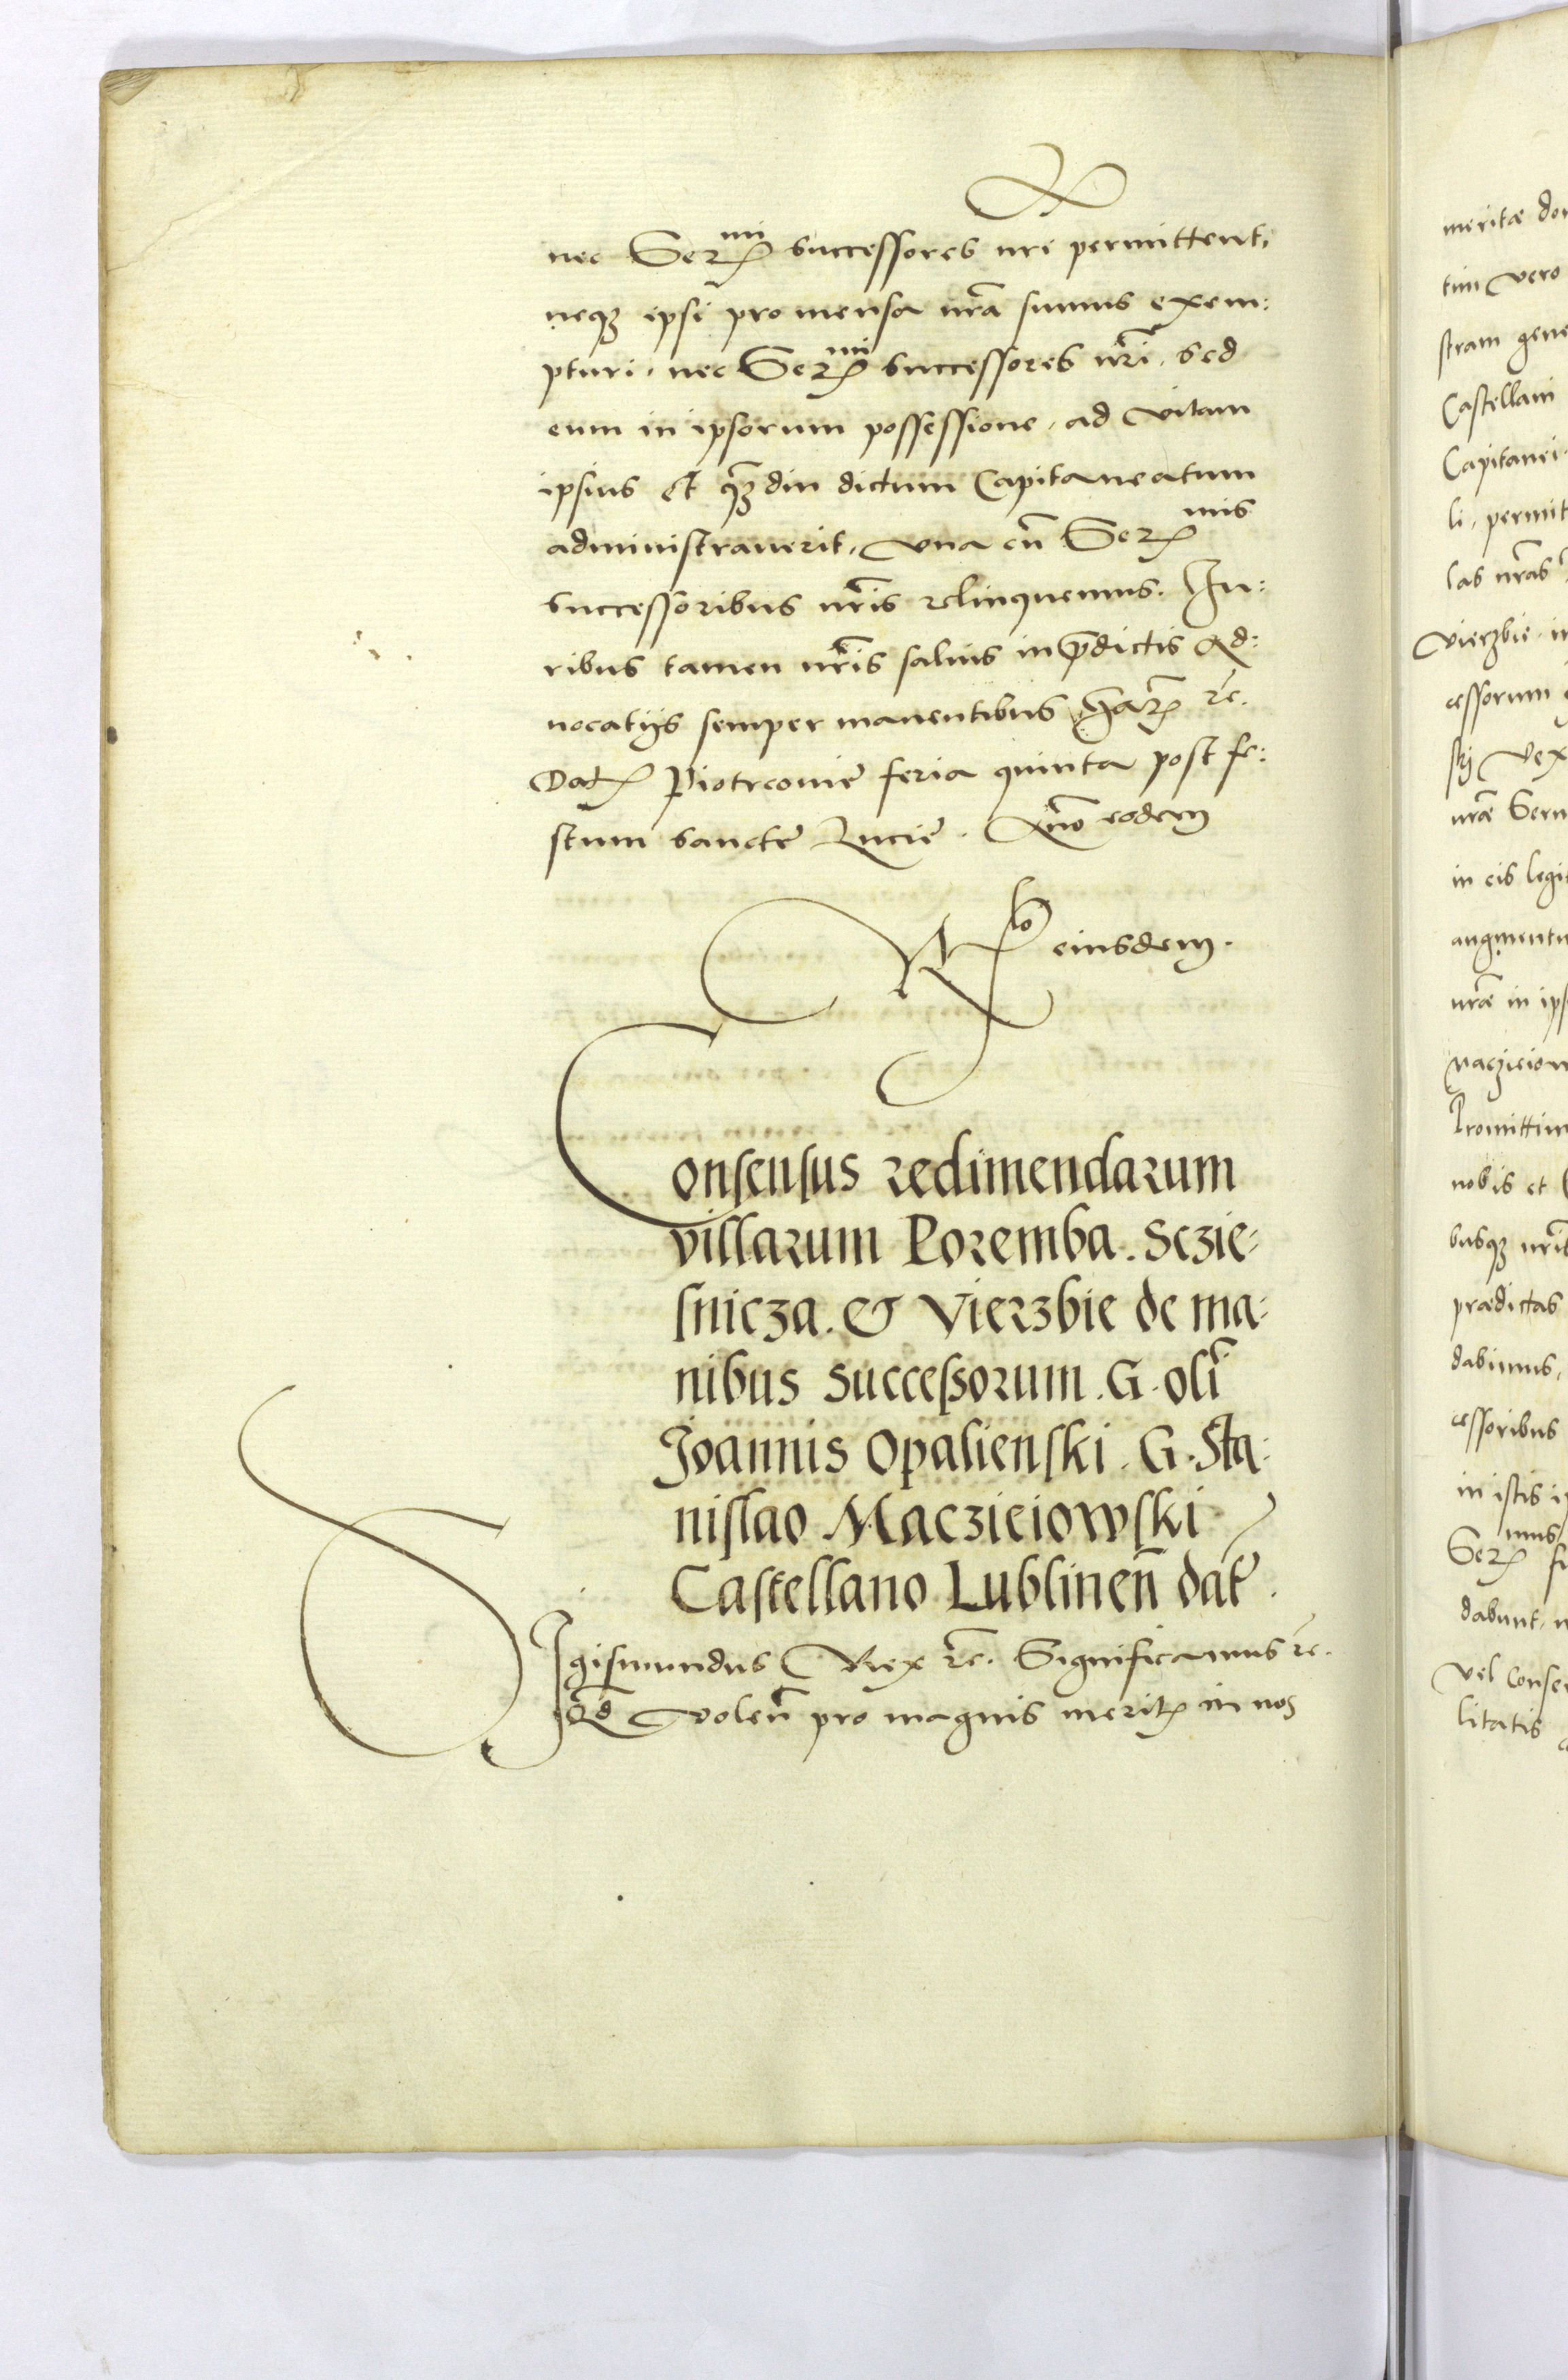 nec Ser<sup>mi</sup> successores nri permittent,
neq3 ipsi pro mensa nrã sumus exem:
pturi, nec Ser<sup>mi</sup> successores nrĩ, sed
eum in ipsorum possessione, ad vitam
ipsius et q̃3diu dictum Capitaneatum
administraverit, vna cũ Ser<sup>mis</sup>
successoribus nrĩs relinquemus. Iu:
ribus tamen nrĩs salvis in p̃dictis Ad:
vocatijs semper manentibus, harȝ rc̃.
Datȝ Piotrcovię feria quinta post fe:
stum sanctę Lucię. Anõ eodem
eiusdem.
Consensus redimendarum
villarum Poremba. Sczie:
snicza. & Vierzbie de ma:
nibus Successorum. G. olĩ
Joannis Opalienski. G. Sta:
nislao Maczieiowski
Castellano Lublineñ dat̃.
SIgismundus Rex rc̃. Significamus rc̃.
Qd̃ voleñ pro magnis meritȝ in nos
meritæ do
tim vero
stram gene
Castellani
Capitanei
li, permit
las nrãs
Vierzbie, in
cessorum
nrãe Seru
in eis legi
augmentu
nrãe in ips
Macziciow
Promittim
nobis et
busq3 nrĩs
prædictas
dabimus,
cessoribus
in istis i
Ser<sup>mus</sup>
dabunt, n
vel Conse
litatis